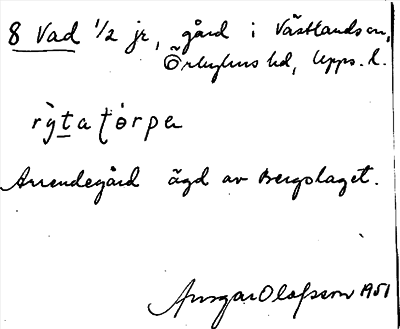 8 Vad 1/2 jr, gård i Västlands sn,
Örbyhus hd, Upps. l.
rỳta tòrpen
Arrendegård ägd av Bergslaget.
Ansgar Olofsson 1951